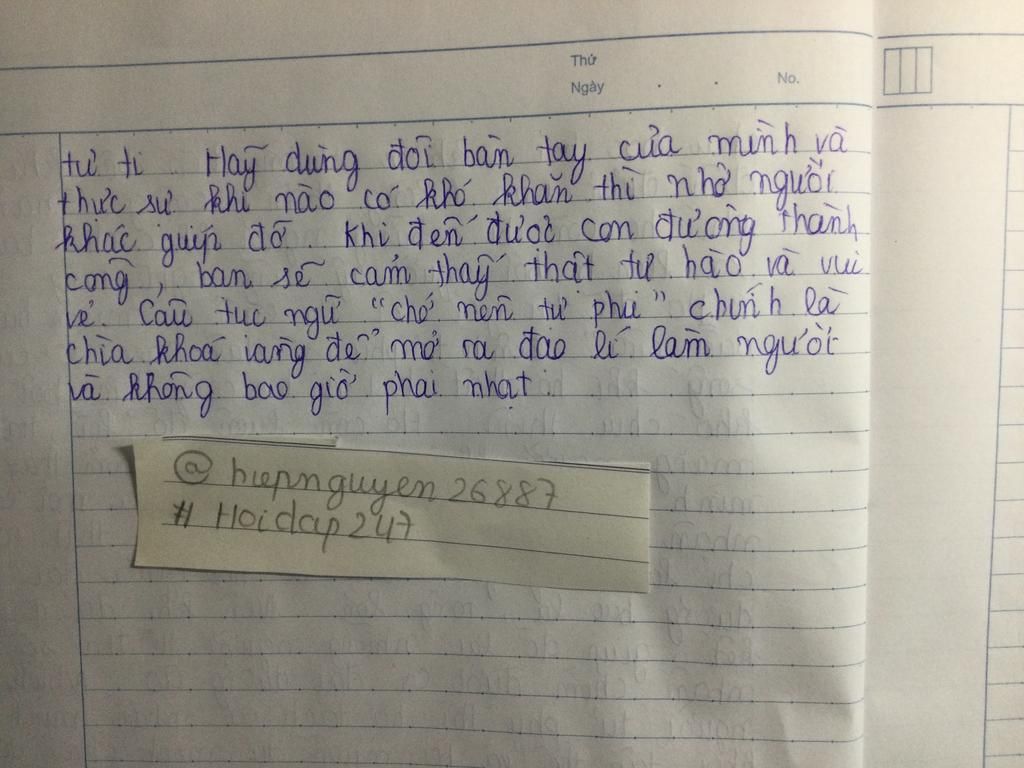 Thứ
Ngày . . No.
tự ti Hãy dùng đôi bàn tay của mình và
thực sự khi nào có khó khăn thì nhờ người
khác guip đỡ. Khi đến được con đường thành
công, bạn sẽ cảm thấy thật tự hào và vui
vẻ. Câu tục ngữ "chớ nên tự phụ" chính là
chìa khoá vàng để mở ra đạo lí làm người
và không bao giờ phai nhạt.
@hiepnguyen26887
# Hoidap247